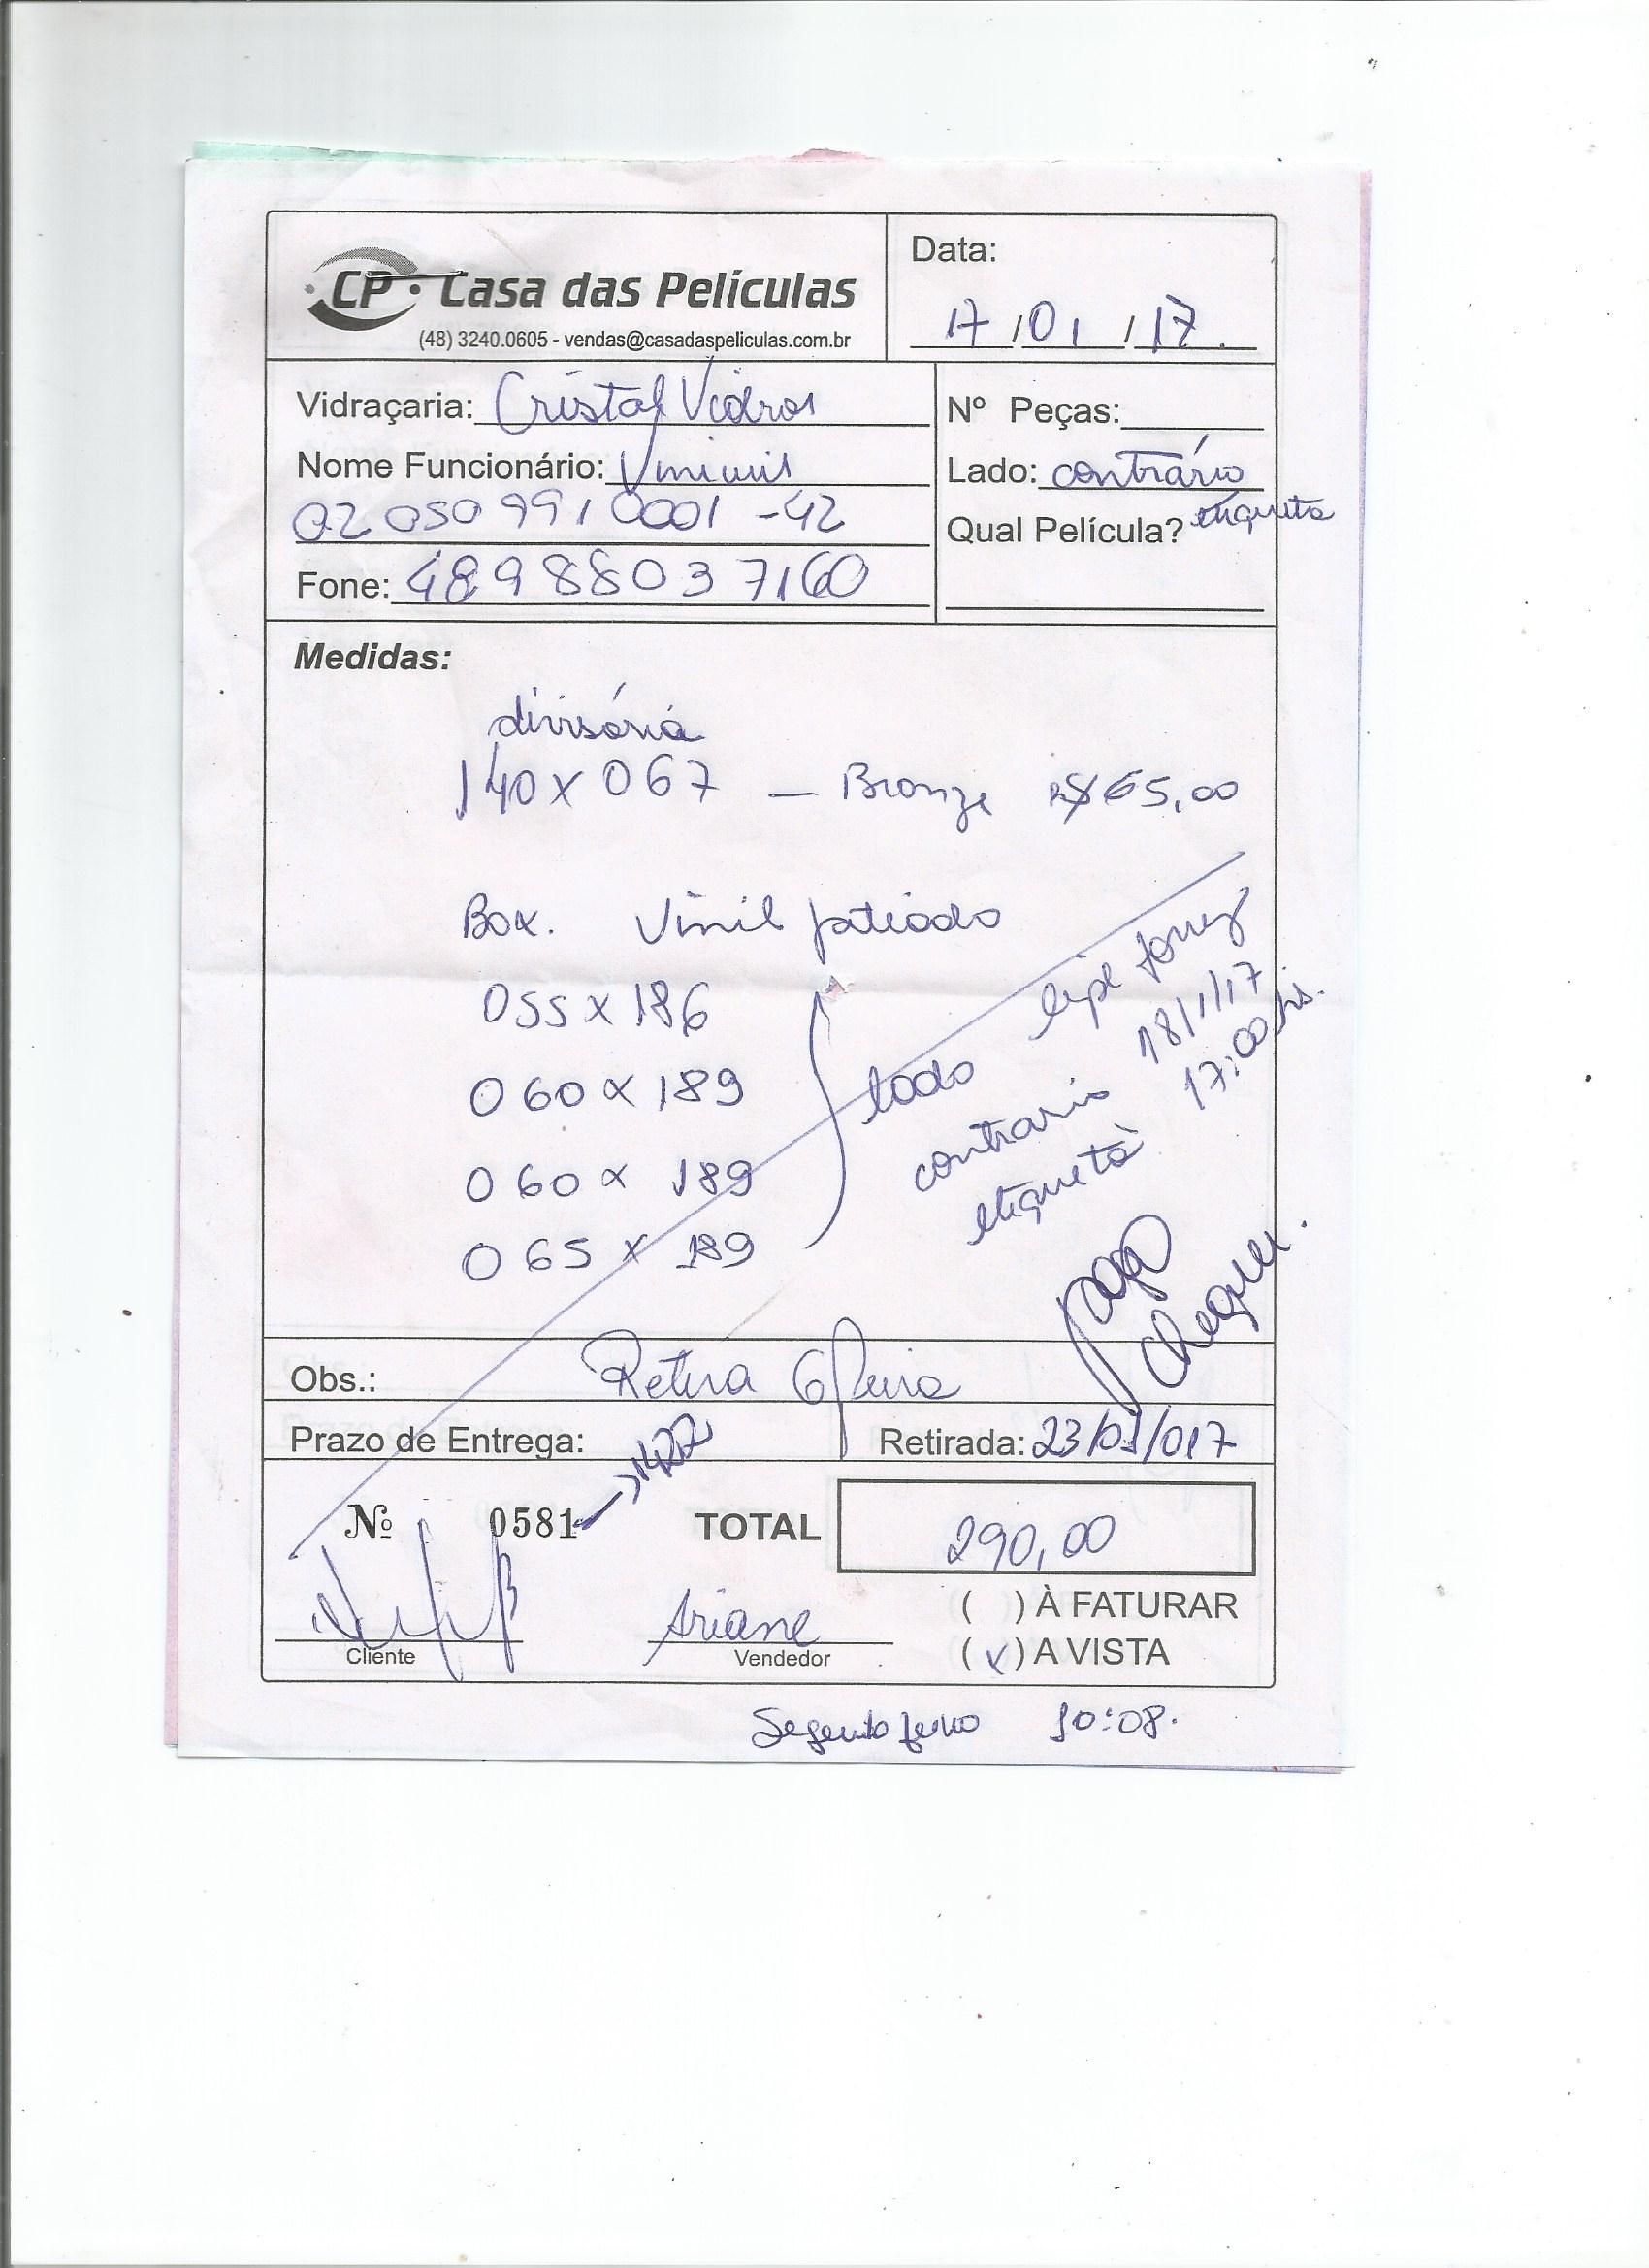 CP Casa das Películas
(48) 3240.0605 - vendas@casadaspeliculas.com.br
Data:
17/01/17
Vidraçaria: Cristal Vidros
Nome Funcionário:
02 050 991 0001 -42
Fone: 48988037160
Nº Peças:
Lado: contrário
etiqueta
Qual Película?
Medidas:
divisória
140 x 067 — Bronze R$65,00
Box. Vinil jateado
055 x 186
060 x 189
060 x 189
065 x 189
lado
contrario
etiqueta
18/1/17
17:00 hs.
pago
cheque.
Obs.: Retira 6 feira
Prazo de Entrega:
Retirada: 23/01/017
Nº 0581
TOTAL 290,00
( ) À FATURAR
(x) A VISTA
Cliente
Ariane
Vendedor
Segunda feira 10:08.